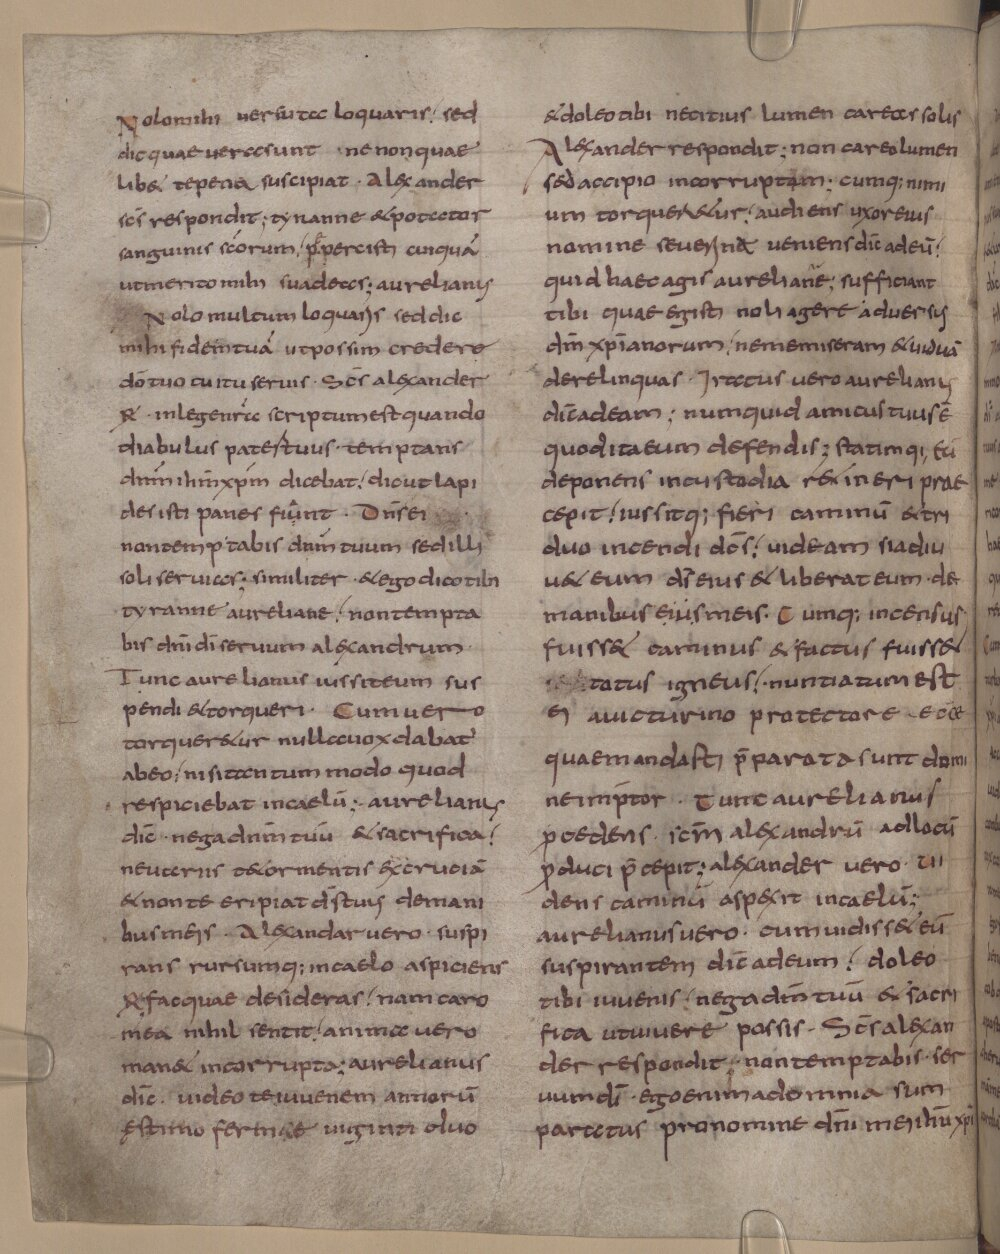 Nolo mihi uersuta loquaris, sed
dic quae uera sunt ne non quae
lib& tepenea suscipiat. Alexander
scs respondit; tyranne & potector
sanguinis scorum, percisti cunquã
ut merito mihi suadeas; aurelianus
Nolo multum loquaris sed dic
mihi fidem tuã ut possim credere
dõ tuo cuitu seruis. Scs alexander
R. in legenrã scriptum est quando
diabulus pater tuus temptans
dnm ihm xpm dicebat, dic ut lapi
des isti panes fiunt. Dns ei
non temptabis dnm tuum sed illi
soli seruias; similiter & ego dico tibi
tyranne aureliane, non tempta
bis dni di seruum alexandrum
Tunc aurelianus iussit eum sus
pendi & torqueri. Cum uero
torquer&ur nulla uox dabat
ab eo, nisi tantum modo quod
respiciebat in caelũ; aurelianus
dic nega dnm tuũ & sacrifica,
ne uariis t&ormentis excruciã
& non te eripiat ds tuus de mani
bus meis. Alexandar uero suspi
rans rursumq; in caelo aspiciens
R fac quae desideras, nam caro
mea nihil sentit, animae uero
man& incorrupta; aurelianus
dic. uideo te iuuenem annorũ
estimo ferme uiginti duo
& doleo tibi ne citius lumen careas solis
Alexander respondit; non careo lumen
sed accipio incorruptam; cumq; nimi
um torquer&ur, audiens uxor eius
nomine seuerina ueniens dic ad eũ,
quid haec agis aureliane; sufficiant
tibi quae egisti noli agere aduersus
dm xpianorum, ne me miseram & uiduã
derelinquas. Iratus uero aurelianus
dic ad eam; numquid amicus tuus ẽ
quod ita eum defendis; statimq; eũ
deponens in custodia r&ineri prae
cepit, iussitq; fieri caminũ & tri
duo incendi dcs, uideam si adiu
u& eum ds eius & liberat eum de
manibus eius meis. Cumq; incensus
fuiss& caminus & factus fuiss&
totus igneus, nuntiatum est
ei a uicturino protectore ecce
quae mandasti p̃parata sunt domi
ne imptor. Tunc aurelianus
pcedens scm alexandrũ ad locũ
pduci p̃cepit; alexander uero ui
dens caminũ aspexit in caelũ;
aurelianus uero cum uidiss& eũ
suspirantem dic ad eum, doleo
tibi iuuenis, nega dm tuũ & sacri
fica ut uiuere possis. Scs alexan
der respondit, non temptabis ser
uum di ego enim ad omnia sum
paratus pro nomine dni mei ihu xpi